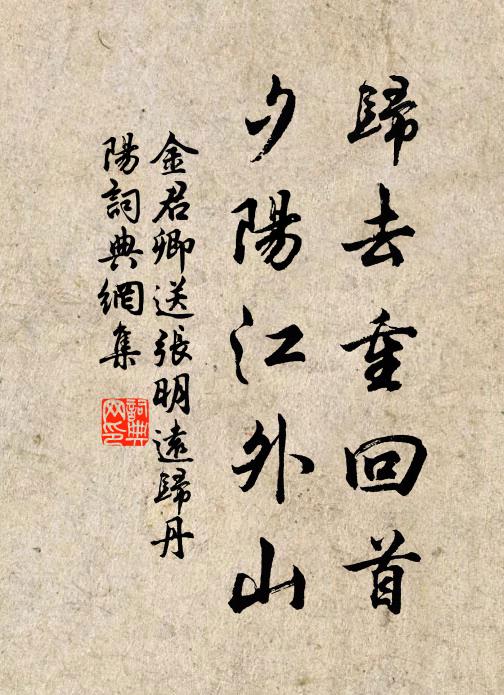 歸去重回首
夕陽江外山
金君卿送張明遠歸丹
陽詞典網集
詞典
网印